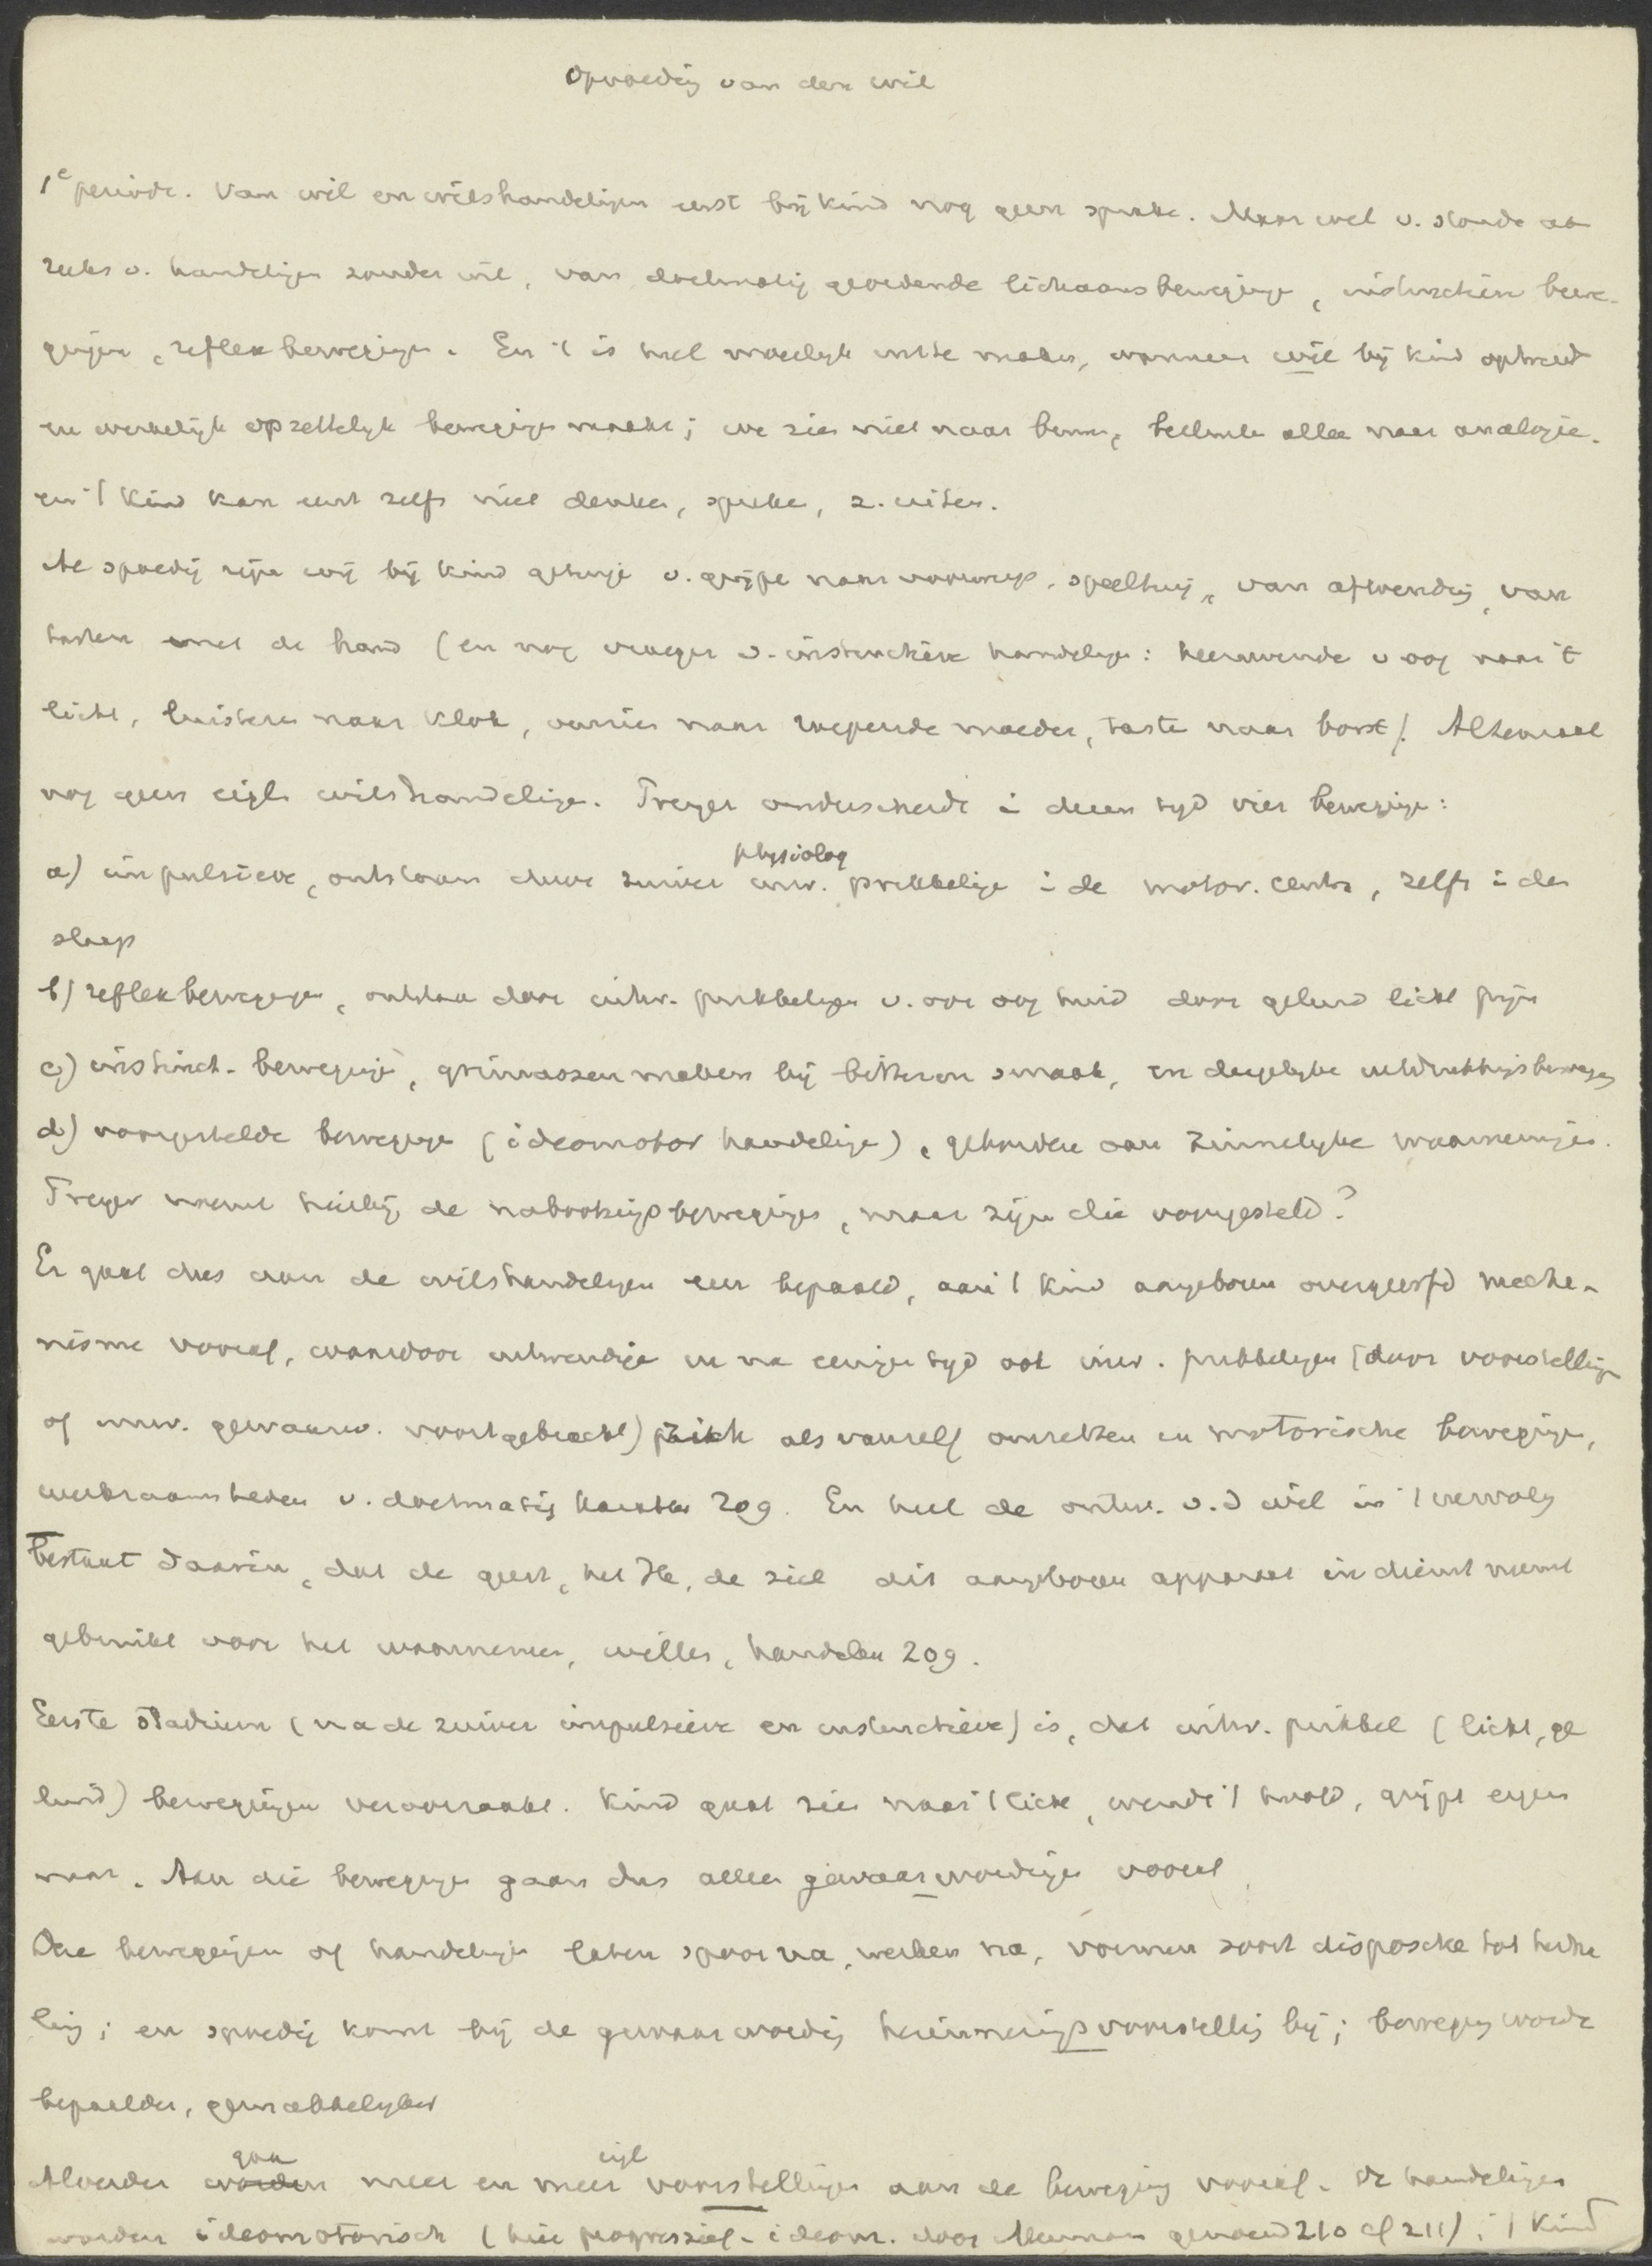 Opvoedig van den wil
1e periode. Van wil en wilshandeligen eerst bij kind nog geen sprake. Maar wel v.
reeks v. handeligen zonder wil, van doelmatig lichaamsbewegige, instinctieve bewe-
gigen, reflexbewegigen. En 't is heel moeilijk uit te maken, wanneer wil bij kind optreedt
en werkelijk opzettelijk bewegige maakt; we zien niet naar binnen, allee naar analogie.
en 't kind kan eerst zelfs niet denken, spreke, z. uiten.
Al spoedig bij kind v. grijpe naar voorwerp. speeltuig, van afwendig, van
tasten met de hand (en nog vroeger v. instinctieve handelige: heenwende v oog naar 't
licht, luisteren naar klok, naar roepende moeder, taste naar borst). Altemaal
nog geen eigl. wilshandelige. Preyer onderscheidt i dien tijd vier bewegige:
a) impulsieve, ontstaan door zuiver inw. physiolog prikkelige i de motor. centra, zelfs i den
slaap
b) reflexbewegige, ontstaan door uitw. prikkelige v. oor oog huid door geluid licht pijn
c) instinct. bewegige, grimassen maken bij bitteren smaak, en dergelijke uitdrukkigsbewegig
d) voorgestelde bewegige (ideomotor handelige), gebonden aan zinnelijke waarnemige.
Preyer noemt hierbij de nabootsigsbewegiges, maar zijn die voorgesteld?
Er gaat dus aan de wilshandeligen een bepaald, aan 't kind aangeboren overgeerfd mecha-
nisme vooraf, waardoor uitwendige en na eenige tijd ook inw. prikkeligen (door voorstellige
of inw. gewaarw. voortgebracht) zich als vanzelf omzetten in motorische bewegige,
werkzaamheden v. doelmatig karakter 209. En heel de ontw. v. d wil in 't vervolg
bestaat daarin, dat de geest, het Ik, de ziel dit aangeboren apparaat in dienst neemt
gebruikt voor het waarnemen, willen, handelen 209.
Eerste stadium (na de zuiver impulsieve en instinctieve) is, dat uitw. prikkel (licht, ge
luid) bewegigen veroorzaakt. Kind gaat zien naar 't licht, wendt 't hoofd, grijpt ergens
naar. Aan die bewegige gaan dus alleen gewaarwordige vooraf
Deze bewegigen of handelige laten spoor na, werken na, vormen soort dispositie tot herha
lig; en spoedig komt bij de gewaarwordig herinnerigsvoorstellig bij; bewegig worde
bepaalder, gemakkelijker
Alverder gaan meer en meer eigl voorstellige aan de beweging vooraf. De handeliges
worden ideomotorisch (hier progressief-ideom. door Meumann genoemd 210 cf 211); 't kind